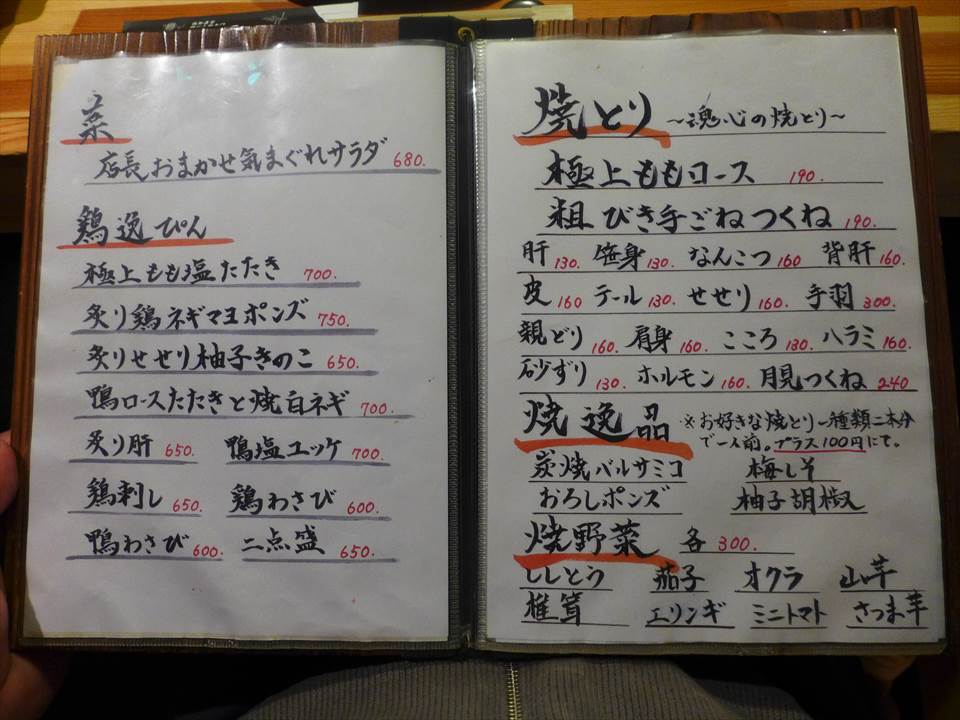 店長おまかせ気まぐれサラダ 680.
鶏逸ぴん
極上もも塩たたき 700.
炙り鶏ネギマヨポンズ 750.
炙りせせり柚子きのこ 650.
鴨ロースたたきと焼白ネギ 700.
炙り肝 650. 鴨塩ユッケ 700.
鶏刺し 650. 鶏わさび 600.
鴨わさび 600. 二点盛 650.
焼とり ～魂心の焼とり～
極上ももロース 190.
粗びき手ごねつくね 190.
肝 130. 笹身 130. なんこつ 160 背肝 160.
皮 160 テール 130. せせり 160. 手羽 300.
親どり 160. 肩身 160. こころ 130. ハラミ 160.
砂ずり 130. ホルモン 160. 月見つくね 240
焼逸品 ※お好きな焼とり一種類二本分
で一人前。プラス100円にて。
炭焼バルサミコ 梅しそ
おろしポンズ 柚子胡椒
焼野菜 各 300.
ししとう 茄子 オクラ 山芋
椎茸 エリンギ ミニトマト さつま芋